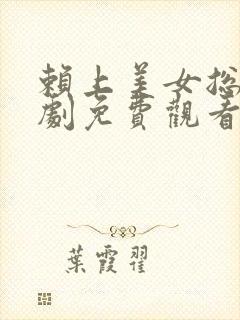 賴上美女總
劇免費觀看
葉霞翟